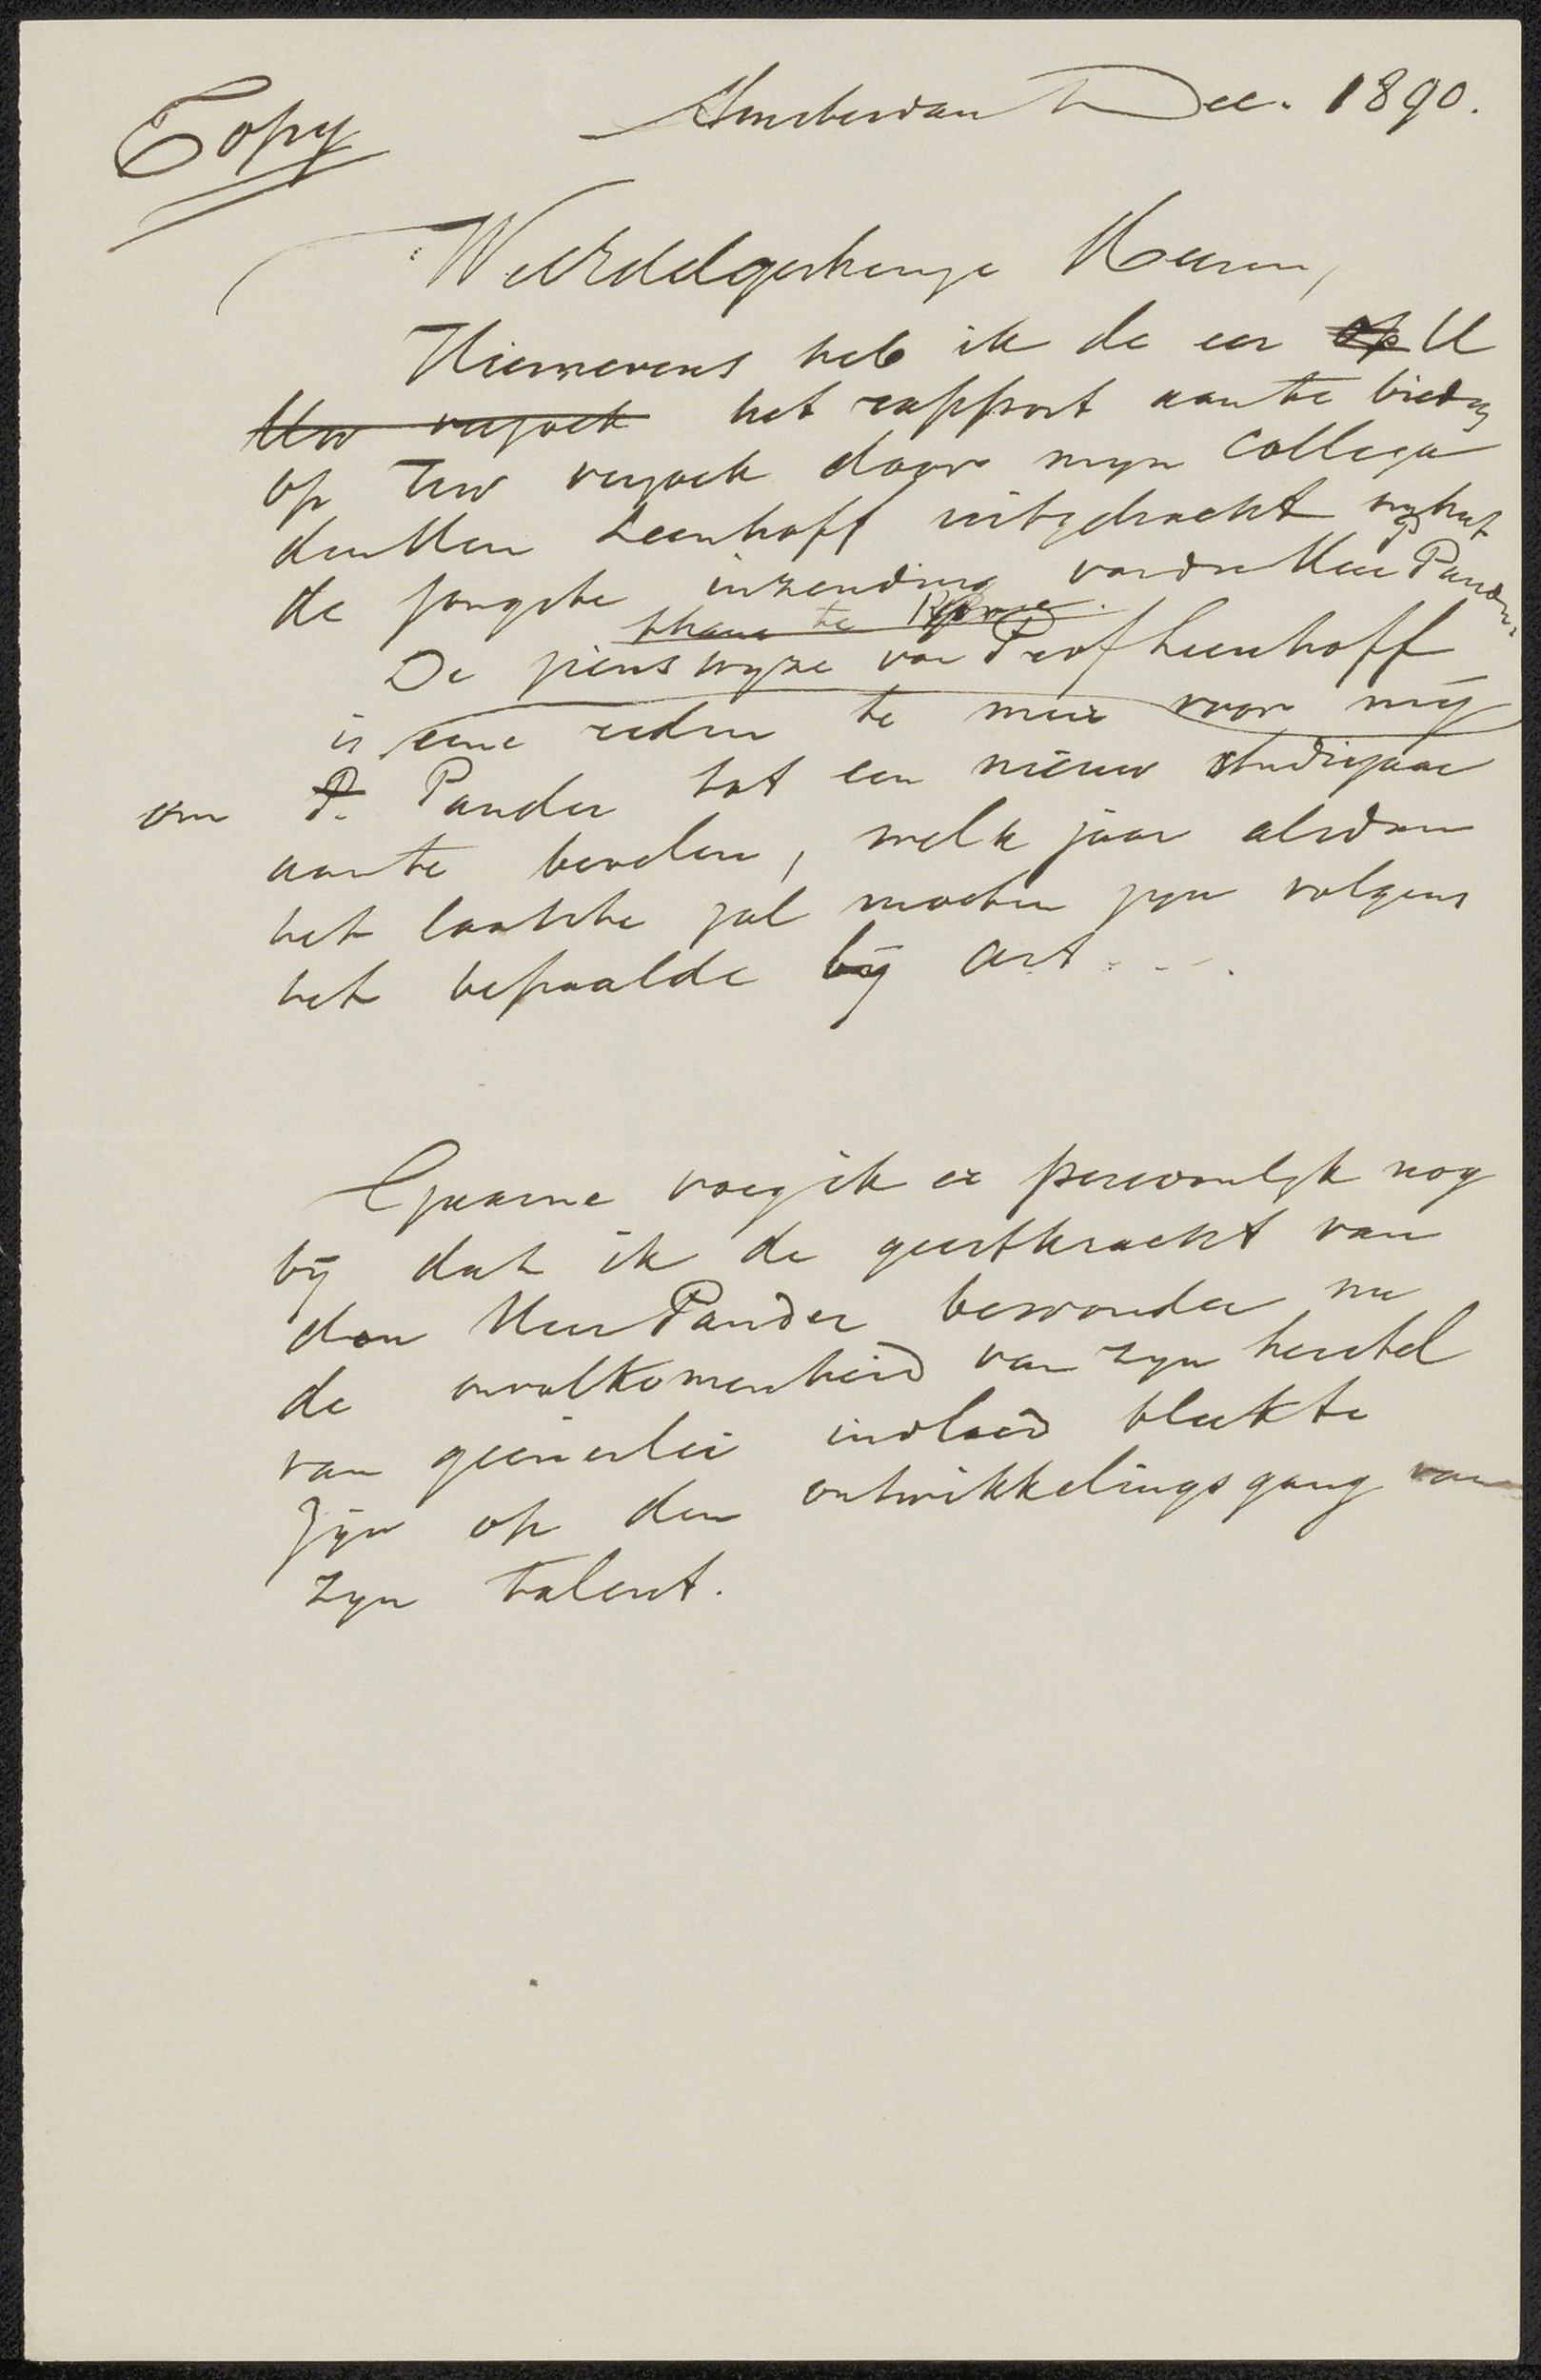 Copy
Amsterdam Dec. 1890.
WelEdelgestrenge Heeren,
Hiernevens heb ik de eer op U
Uw verzoek het rapport aan te bieden
op Uw verzoek door myn Collega
den Heer Leenhoff uitgebracht
de jongste inzending van den Heer Pander
thans te Rome.
De zienswyze van Prof Leenhoff
is eene reden te meer voor mij
om P. Pander tot een nieuw studiejaar
aan te bevelen, welk jaar alsdan
het laatste zal moeten zyn volgens
het bepaalde bij Art....
Gaarne voeg ik er persoonlyk nog
bij dat ik de geestkracht van
den Heer Pander bewonder nu
de onvolkomenheid van zyn herstel
van geenerlei invloed bleekte
zijn op den ontwikkelingsgang van
zyn talent.